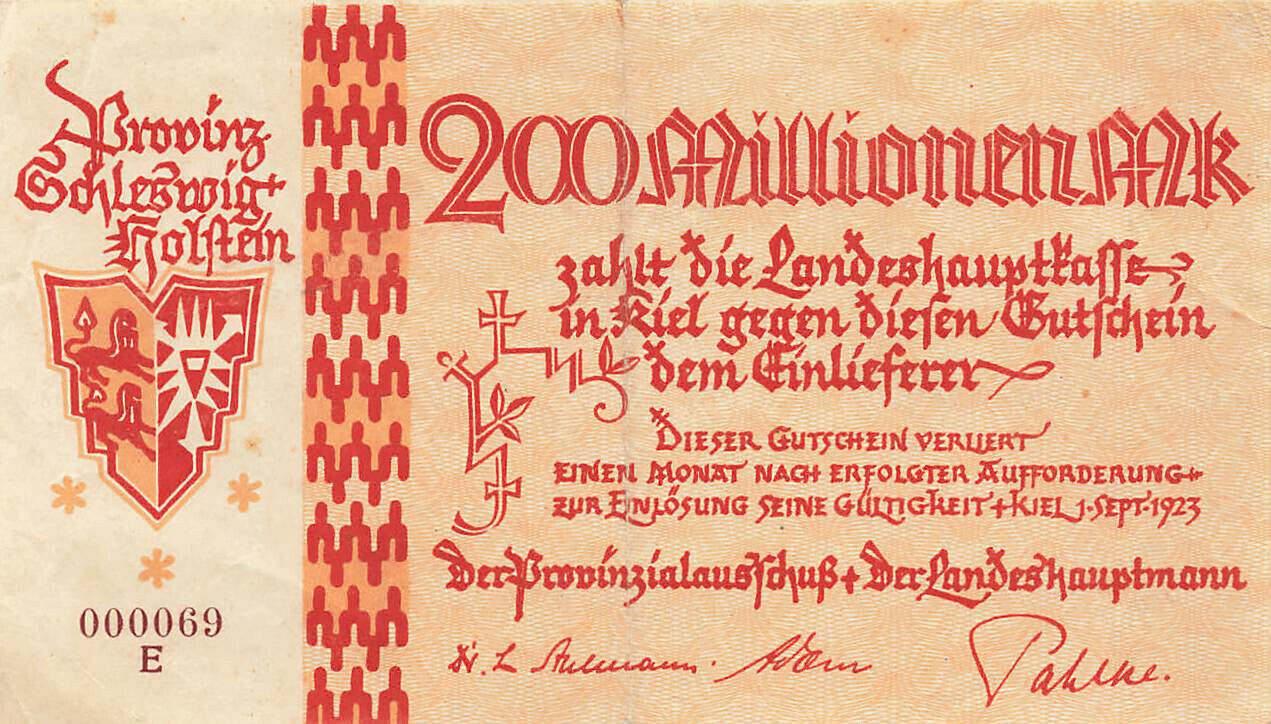 Provinz
Schleswig-
Holstein
000069
E
200 Millionen Mk
zahlt die Landeshauptkasse
in Kiel gegen diesen Gutschein
dem Einlieferer
DIESER GUTSCHEIN VERLIERT
EINEN MONAT NACH ERFOLGTER AUFFORDERUNG
ZUR EINLÖSUNG SEINE GÜLTIGKEIT + KIEL 1·SEPT·1923
Der Provinzialausschuß + Der Landeshauptmann
Pahlke.